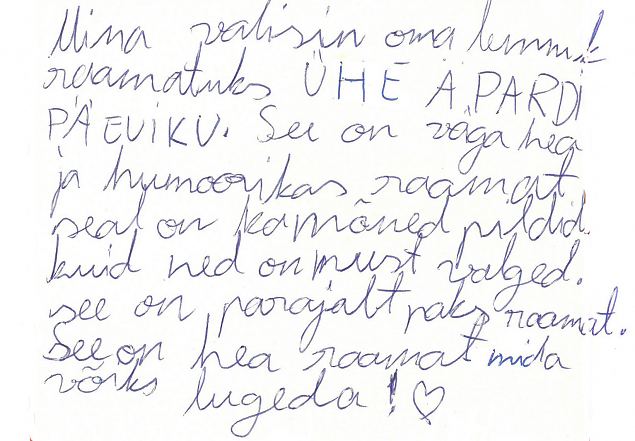 Mina valisin oma lemmik
raamatuks ÜHE ÄPARDI
PÄEVIKU. See on väga hea
ja humoorikas raamat
seal on ka mõned pildid.
kuid ned on must valged.
see on parajalt paks raamat.
See on hea raamat mida
võiks lugeda! ♡